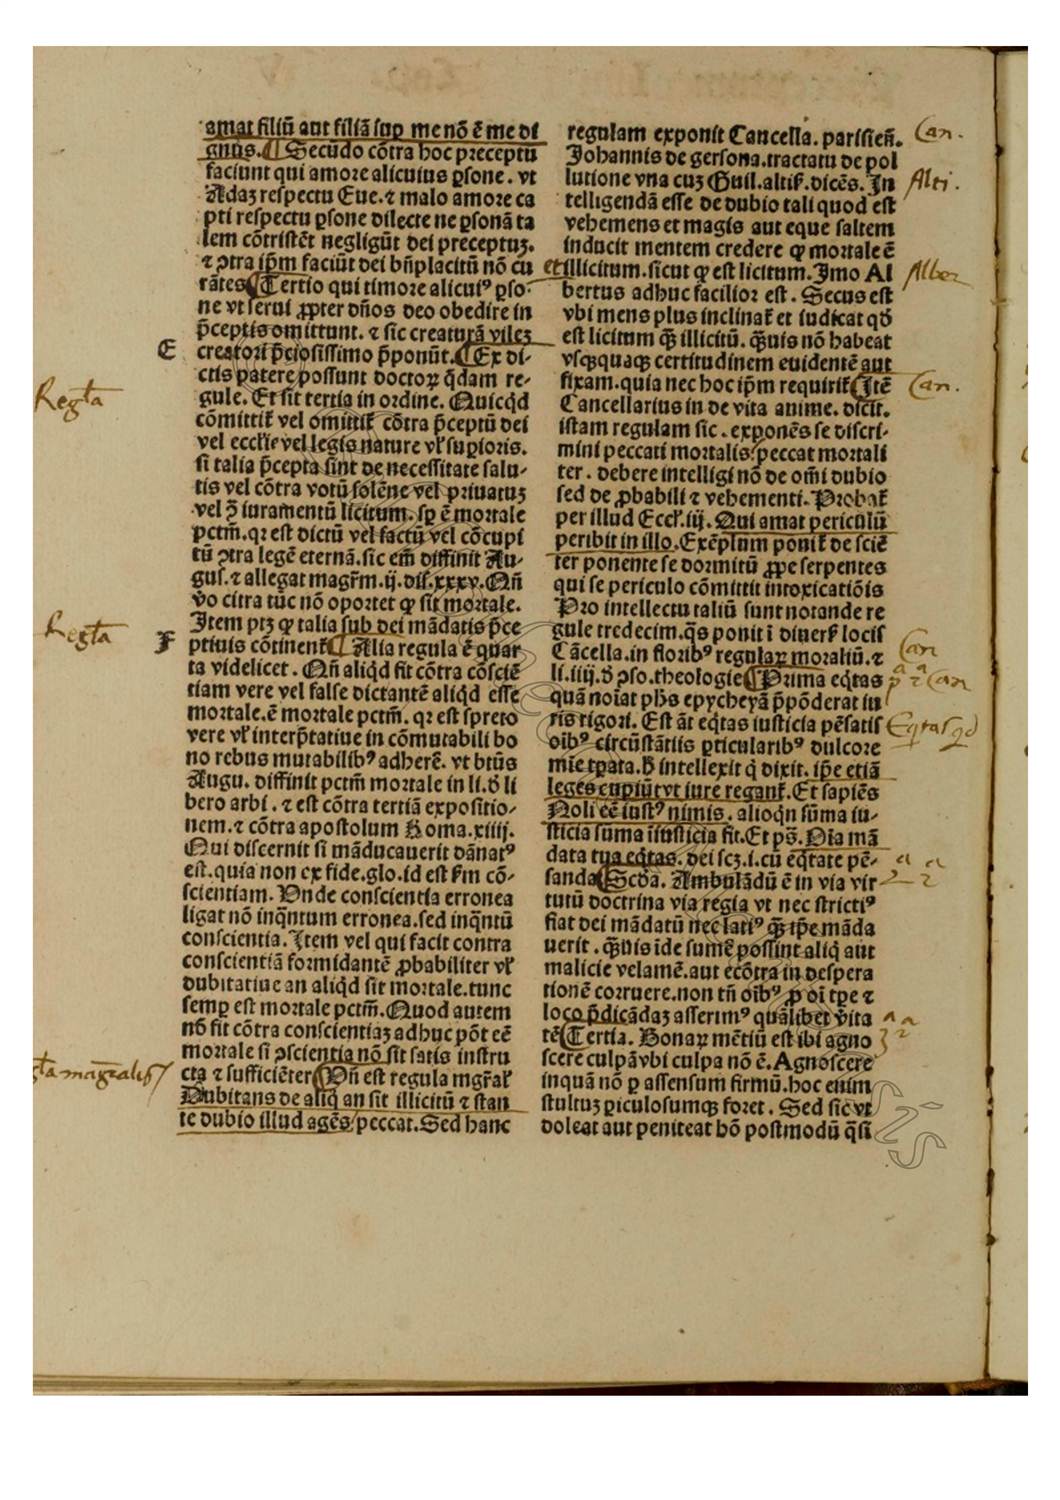 amat filiũ aut filiã sup me nõ ẽ me di
gnus. ¶ Secũdo cõtra hoc preceptũ
faciunt qui amore alicuius ꝑsone. vt
Adaꝫ respectu Eue. ⁊ malo amore ca
pti respectu ꝑsone dilecte ne ꝑsonã ta
lem cõtristẽt negligũt dei preceptuꝫ.
⁊ ꝯtra ip̃m faciũt dei bñplacitũ nõ cu
rãtes ¶ Tertio qui timore alicuiꝰ ꝑso-
ne vt serui ꝓpter dños deo obedire in
p̃ceptis omittunt. ⁊ sic creaturã vileꝫ
E creatori p̃ciosissimo p̃ponũt. ¶ Ex di-
ctis patere possunt doctoꝝ q̃dam re-
Regła
gule. Et sit tertia in ordine. Quicq̃d
cõmittit̃ vel omittit̃ cõtra p̃ceptũ dei
vel eccłie vel legis nature vł suꝑioris.
si talia p̃cepta sint de necessitate salu-
tis vel cõtra votũ solẽne vel priuatuꝫ
vel ꝯ̃ iuramentũ licitum. sꝑ ẽ mortale
pctm̃. qꝛ est dictũ vel factũ vel cõcupi
tũ ꝯtra legẽ eternã. sic em̃ diffinit Au-
gus. ⁊ allegat magr̃m. ij. dis. xxxv. Qñ
ṽo citra tũc nõ oportet ꝙ sit mortale.
Item ptꝫ ꝙ talia sub dei mãdatis p̃ce
Regła
F ptiuis cõtinent̃ ¶ Alia regula ẽ quar
ta videlicet. Qñ aliq̃d fit cõtra cõsciẽ
tiam vere vel false dictantẽ aliq̃d esse
mortale. ẽ mortale pctm̃. qꝛ est spreto
vere vł interp̃tatiue in cõmutabili bo
no rebus mutabilibꝰ adherẽ. vt btũs
Augu. diffinit pctm̃ mortale in li. ď li
bero arbi. ⁊ est cõtra tertiã expositio-
nem. ⁊ cõtra apostolum Roma. xiiij.
Qui discernit si mãducauerit dãnatꝰ
est. quia non ex fide. glo. id est s̃m cõ-
scientiam. Unde conscientia erronea
ligat nõ inq̃ntum erronea. sed inq̃ntũ
conscientia. Item vel qui facit contra
conscientiã formidantẽ ꝓbabiliter vł
dubitatiue an aliq̃d sit mortale. tunc
semꝑ est mortale pctm̃. Quod autem
nõ fit cõtra conscientiaꝫ adhuc põt eẽ
mortale si ꝯscientia nõ sit satis instru
cta ⁊ sufficiẽter ¶ Uñ est regula mgr̃ał
gła magr̃alis
Dubitans de aliq̃ an sit illicitũ ⁊ stan
te dubio illud agẽs peccat. Sed hanc
regulam exponit Cancella. parisieñ.
Can.
Johannis de gersona. tractatu de pol
lutione vna cuꝫ Guil. altis̃. dicẽs. In
Alti.
telligendã esse de dubio tali quod est
vehemens et magis aut eque saltem
inducit mentem credere ꝙ mortale ẽ
et illicitum. sicut ꝙ est licitum. Imo Al
Alber
bertus adhuc facilior est. Secus est
vbi mens plus inclinat̃ et iudicat qď
est licitum q̃ꝫ illicitũ. q̃ꝫuis nõ habeat
vsqꝫquaqꝫ certitudinem euidentẽ aut
fixam. quia nec hoc ip̃m requirit̃ ¶ Itẽ
Can.
Cancellarius in de vita anime. dicit.
istam regulam sic. exponẽs se discri-
mini peccati mortalis/peccat mortali
ter. debere intelligi nõ de om̃i dubio
sed de ꝓbabili ⁊ vehementi. Probat̃
per illud Eccł. iij. Qui amat periculũ
peribit in illo. Exẽplum ponit̃ de sciẽ
ter ponente se dormitũ ꝓpe serpentes
qui se periculo cõmittit intoxicatiõis
Pro intellectu taliũ sunt notande re
gule tredecim. q̃s ponit ĩ diuers̃ locis
Cãcella. in floribꝰ regulaꝝ moraliũ. ⁊
Can
li. iiij. ď ꝯso. theologie ¶ Prima eq̃tas
pª ⁊ª Can
quã noĩat ph̃s epycheyã p̃põderat iu
ris rigori. Est ãt eq̃tas iusticia pẽsatis
Eq̃tas qď
oĩbꝰ circũstãtiis ꝑticularibꝰ dulcore
mĩe tꝑata. ħ intellexit q̃ dixit. ip̃e etiã
leges cupiũt vt iure regant̃. Et sapiẽs
Noli eẽ iustꝰ nimis. alioqñ sũma iu-
sticia sũma ĩiusticia fit. Et ps̃. Oĩa mã
data tua eq̃tas. dei scꝫ. i. cũ eq̃tate pẽ-
sanda ¶ Scďa. Ambulãdũ ẽ in via vir
2ª 2ª
tutũ doctrina via regia vt nec strictiꝰ
fiat dei mãdatũ nec latiꝰ q̃ꝫ ip̃e mãda
uerit. q̃ꝫuis ĩde sumẽ possint aliq̃ aut
malicie velamẽ. aut ecõtra in despera
tionẽ corruere. non tñ oĩbꝰ ꝓ oĩ tꝑe ⁊
loco p̃dicãdaꝫ asserimꝰ qualibet ṽita
tẽ ¶ Tertia. Bonaꝝ mẽtiũ est ibi agno
3ª 2ª
scere culpã vbi culpa nõ ẽ. Agnoscere
inquã nõ ꝑ assensum firmũ. hoc enim
stultuꝫ ꝑiculosumqꝫ foret. Sed sic vt
doleat aut peniteat hõ postmodũ q̃si